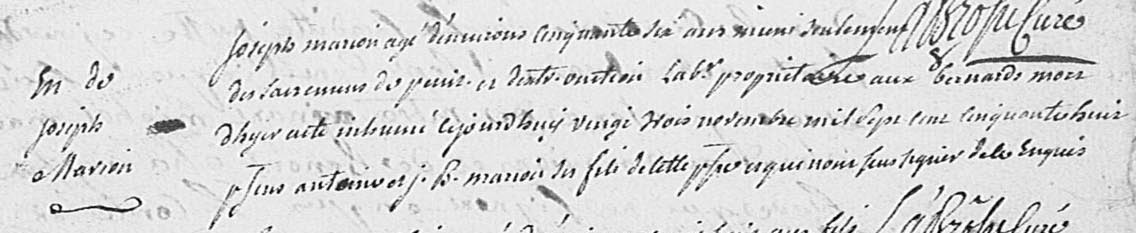 En. de
joseph
Marion
joseph marion agé d'environs cinquante six ans muni seulement
des sacremens de penit. et d'extr. onction lab.r proprietaire aux bernards mort
dhyer a eté inhumé cejourdhuij vingt trois novembre mil sept cent cinquante huit
p̃sens antoine et j. B. marion ses fils de cette psse et qui nont sceu signer de ce enquis
Labrosse Curé
Labrosse Curé